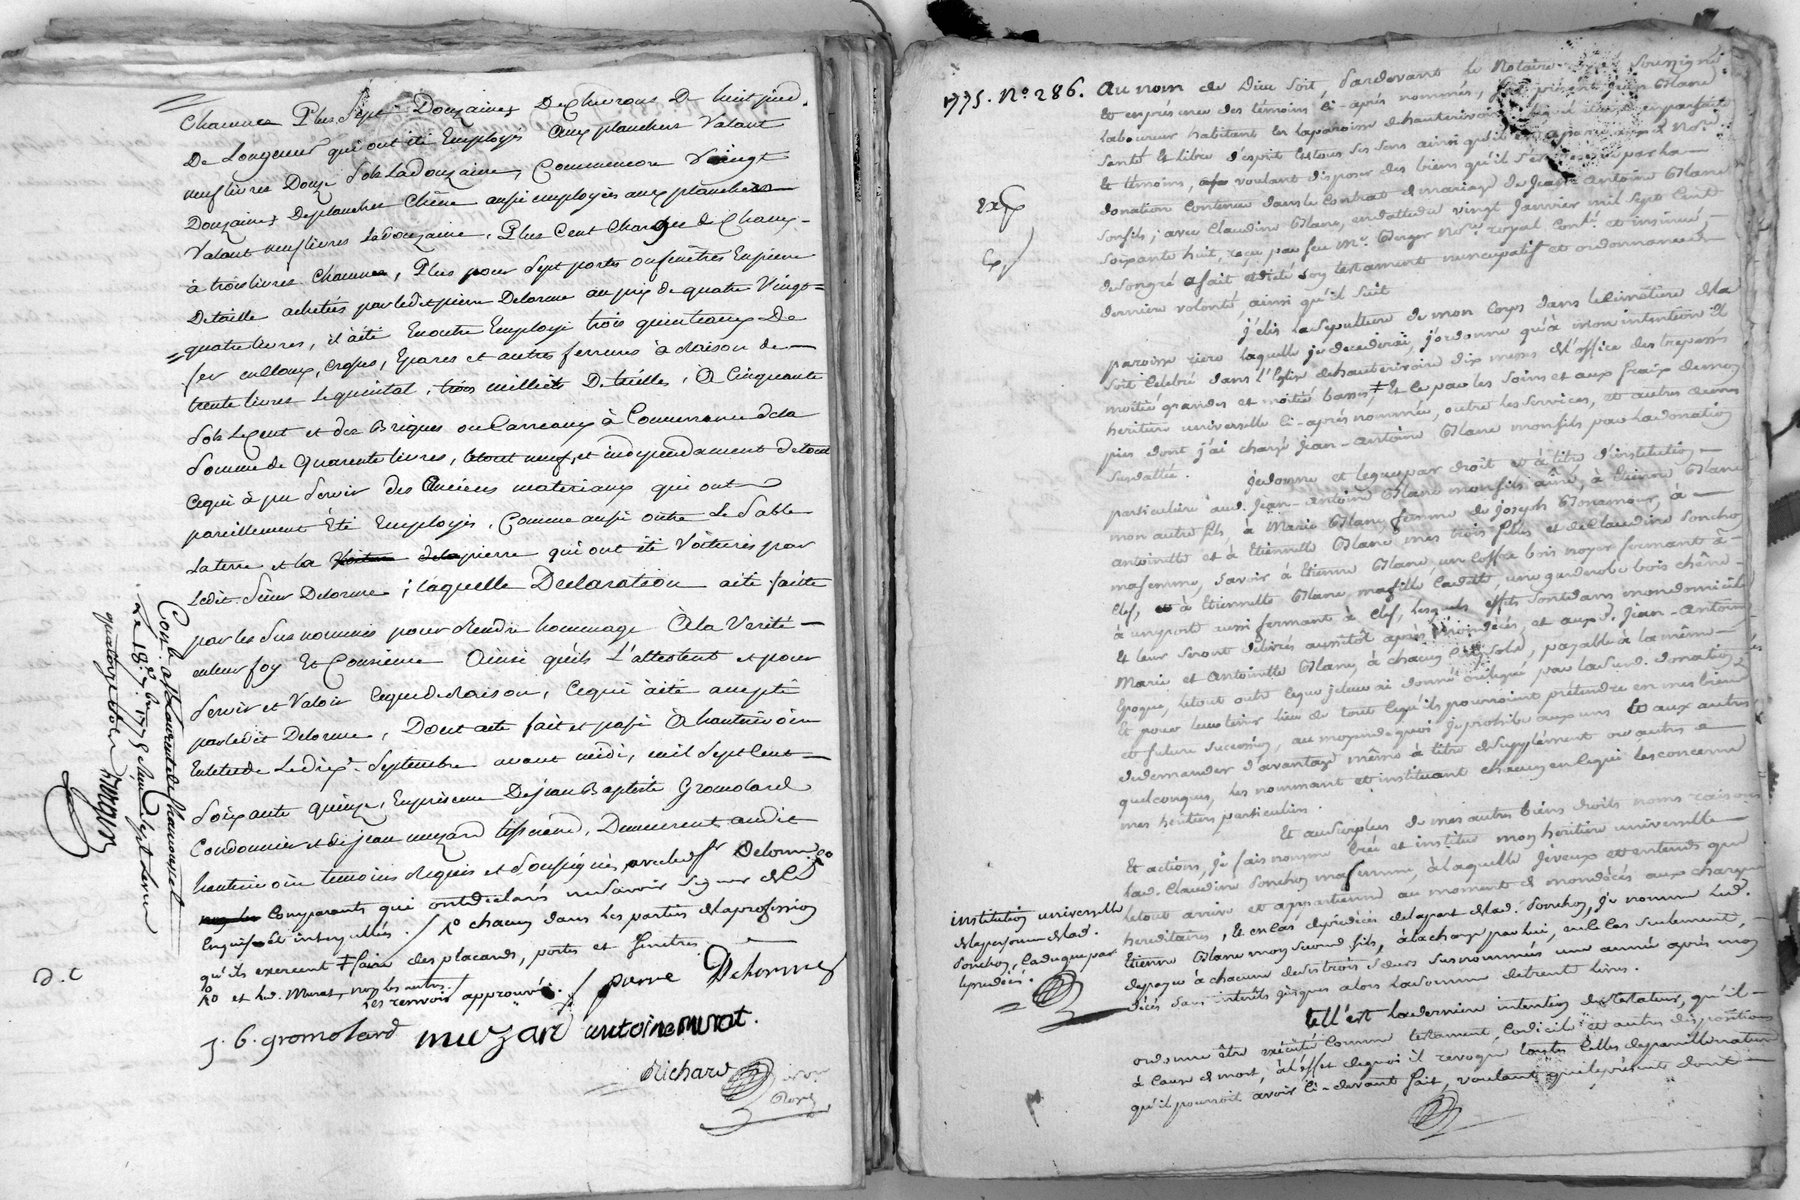 Chacune, Plus Sept Douzaines De chevrons De huit pied.
De Longueur qui ont été Employés aux planchers Valant
neuf livres Douze Sols La douzaine, Comme encore Vingt
Douzaines De planches Chêne aussi employées aux planchers
Valant neuf livres La douzaine, Plus Cent Charges de Chaux
à trois livres Chacune, Plus pour Sept portes ou fenêtres En pierre
De taille achetées par ledit pierre Delorme au prix de quatre Vingt=
quatre livres, il a été Encore Employé trois quintaux De
fer en Cloux, Crosses, Epares et autres ferrures à Raison de
trente livres Le quintal, trois milliers De tuilles, à Cinquante
Sols Le Cent et des Briques ou Carreaux à Concurrence de la
Somme de Quarente livres, le tout neuf, et indépendament de tout
Ce qui à pu Servir des Anciens materiaux qui ont
pareillement Eté Employés, Comme aussi outre Le Sable
La terre et la pierre qui ont été Voiturés par
Ledit Sieur Delorme; laquelle Déclaration a été faitte
par les Sus nommés pour Rendre hommage À la Verité
en leur foy Et Consience Ainsi qu'ils L'attestent et pour
Servir et Valoir Ce que de Raison, Ce qui à été accepté
par ledit Delorme, Dont acte fait et passé À hauterivoire
En l'etude Le dix Septembre avant midi, mil Sept Cent
Soixante quinze, En présence De jean Baptiste Gromolard
Cordonnier et de jean muzard tisserand, Demeurant audit
hauterivoire temoins Requis et Soussignés, avec led. Sr Delorme
Comparants qui ont déclarés ne Savoir Signer de Ce
Enquis Et interpellés. / Ro chacun dans les parties de la profession
qu'ils exercent ‡ faire des placards, portes et fenetres
Ro et led. Murat, non les autres /
Les renvois approuvés. / pierre Delorme
J. B. gromolard muzard antoine murat.
Richard
Con.lé à St Laurent de Chamousset
Le 18. 7.bre 1775 Reçu Sept Livre
quatorze Sols
D. C
1775. No. 286. Au nom de Dieu Soit, Pardevant le Notaire Soussigné
Et en présence des témoins Ci-après nommés, fut présent Jean Blanc
laboureur habitant En la paroisse d'hauterivoire en parfait
santé Et libre d'esprit Et tous ses sens ainsi qu'il est apparu aux d. No.re
Et témoins, voulant disposer des biens qu'il s'est par la
donation Contenue dans le Contrat de mariage de Jean-Antoine Blanc
son fils, avec Claudine Blanc, en datte du vingt Janvier mil Sept Cent
Soixante huit, reçu par feu Me. Berger No.re royal Con.lé et insinué,
de son gré a fait et dicté Son testament nuncupatif et ordonnance de
derniere volonté, ainsi qu'il Suit.
J'élis la Sépulture de mon Corps dans le Cimétiere de la
paroisse riere laquelle je décéderai, j'ordonne qu'à mon intention il
Soit Célébré dans l'Eglise d'hauterivoire dix messes de l'office des trépassés
moitié grandes et moitié basses ‡ Et Ce par les Soins et aux fraix de mon
héritiere universelle Ci-après nommée, outre les Services, et autres œuvres
pies dont j'ai chargé Jean-Antoine Blanc mon fils par la donation
Susdattée.
Je donne et legue par droit et à titre d'institution
particuliere aud. Jean-Antoine Blanc mon fils aîné, à Etienne Blanc
mon autre fils, à Marie Blanc femme de Joseph Bonamour, à
antoinette et à Etiennette Blanc, mes trois filles et de Claudine Ponchon
ma femme, Savoir à Etienne Blanc un Coffre bois noyer fermant à
Clef, à Etiennette Blanc, ma fille Cadette, une garderobe bois chêne
à une porte aussi fermant à Clef, lesquels effets Sont dans mon domicile
Et leur Seront délivrés aussitôt après mon décès, et aux d. Jean-Antoine
Marie et Antoinette Blanc à chacun Cinq Sols, payable à la même
Epoque, le tout outre Ce que je leur ai donné ou légué par la Sus d. donation
Et pour leur tenir lieu de tout Ce qu'ils pourroient prétendre en mes biens
et future Succession, au moyen de quoi je prohibe aux uns Et aux autres
de demander d'avantage même à titre de Supplément ou autre
quelconques, les nommant et instituant chacun en Ce qui les concerne
mes héritiers particuliers.
Et au Surplus de mes autres biens droits noms raisons
Et actions, Je fais nomme Crée et institue mon héritiere universelle
lad. Claudine Ponchon ma femme, à laquelle Je veux et entends que
le tout arrive et appartienne au moment de mon décès aux charges
héréditaires, Et en Cas de prédécès de la part de lad. Ponchon, Je nomme led.
Etienne Blanc mon Second fils, à la charge par lui, en Ce Cas Seulement,
de payer à chacune de Ses trois Sœurs Susnommées une année après mon
décès Sans intérêts jusques alors la Somme de trente livres.
Tell'est la derniere intention du testateur, qu'il
ordonne être exécuté Comme testament, Codicile Et autres dispositions
à Cause de mort, à l'éffet de quoi il revoque toutes Celles de pareille nature
qu'il pourroit avoir Ci-devant fait, voulant que le présent Soit
Exp
institution universelle
de la personne de lad.
Ponchon, Caduque par
le prédécès.